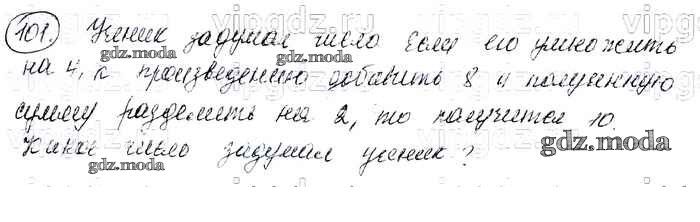 101. Ученик задумал число Если его умножить
на 4, к произведению добавить 8 и полученную
сумму разделить на 2, то получится 10.
Какое число задумал ученик?
vipgdz.ru
gdz.moda
gdz.moda
gdz.moda
gdz.moda
gdz.moda